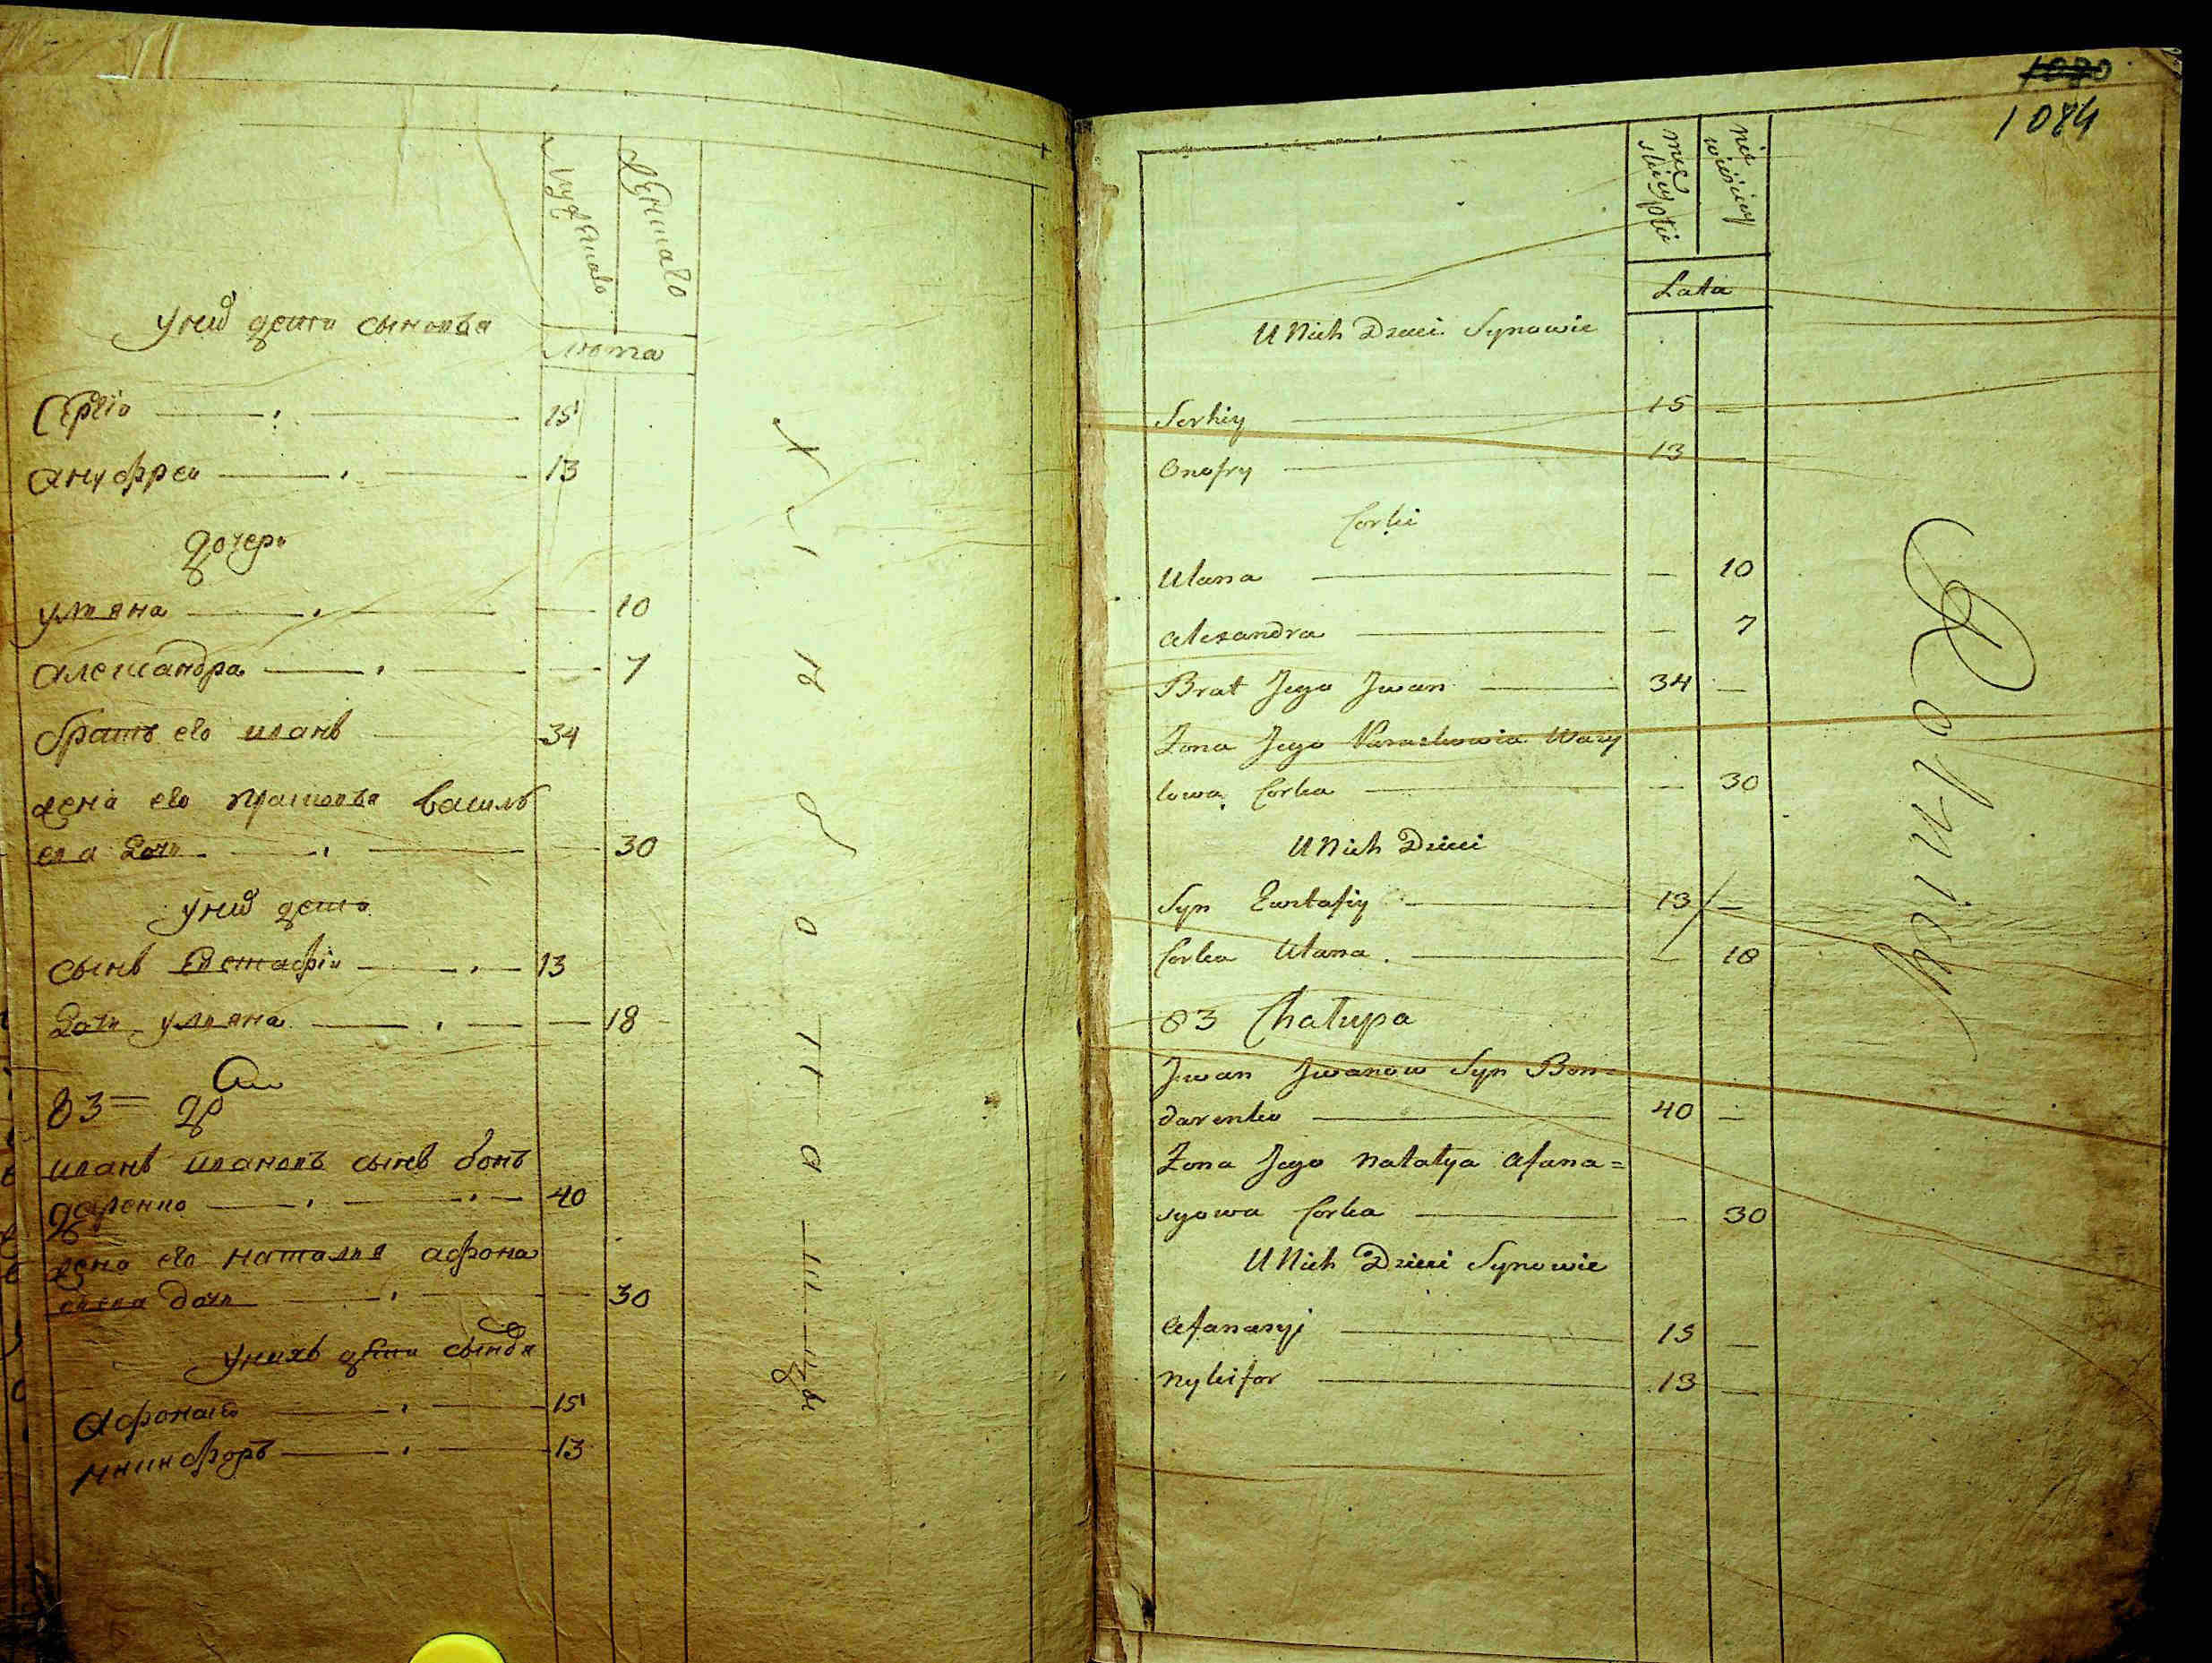 мужеска
женска
лѣта
У них дети сыновья
Сергій 15
Ануфрей 13
дочери
Ульяна 10
Александра 7
братъ его иванъ 34
жена его прасковья Василь
ева дочь 30
У них дети
сынъ Евстафій 13
дочь ульяна 18
83 = дво
иванъ ивановъ сынъ бонъ
даренко 40
жена его наталья афона
сьева дочь 30
У нихъ дети сыновья
Афонасей 15
Никифоръ 13
1084
Lata
U Nich Dzieci Synowie
Serhiy 15 —
Onofry 13 —
Corki
Ulana — 10
Alexandra — 7
Brat Jego Jwan 34 —
Zona Jego Paraskowia Wasy
lowa Corka — 30
U Nich Dzieci
Syn Eustafiy 13 —
Corka Ulana — 18
83 Chałupa
Jwan Jwanow Syn Bon=
darenko 40 —
Zona Jego Natalya Afana=
syowa Corka — 30
U Nich Dzieci Synowie
Afanasyi 15 —
Nykifor 13 —
Rolnicy